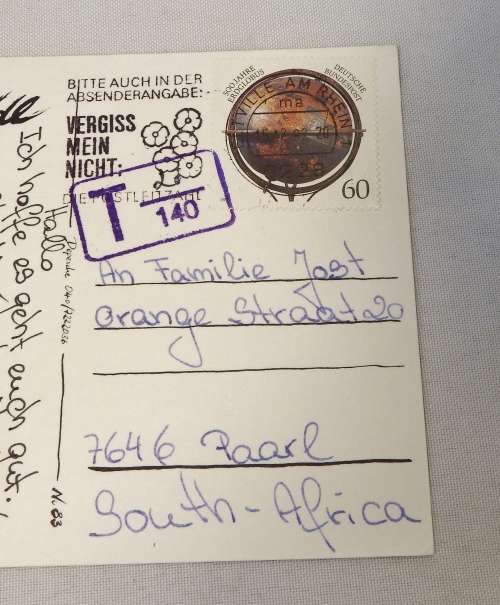 BITTE AUCH IN DER
ABSENDERANGABE:
VERGISS
MEIN
NICHT:
DIE POSTLEITZAHL
T
140
500 JAHRE
ERDGLOBUS
DEUTSCHE
BUNDESPOST
TVILLE AM RHEIN 1
ma
60
An Familie Jost
Orange Straat 20
7646 Paarl
South-Africa
Hallo
Ich hoffe es geht euch gut.
Nr. 83